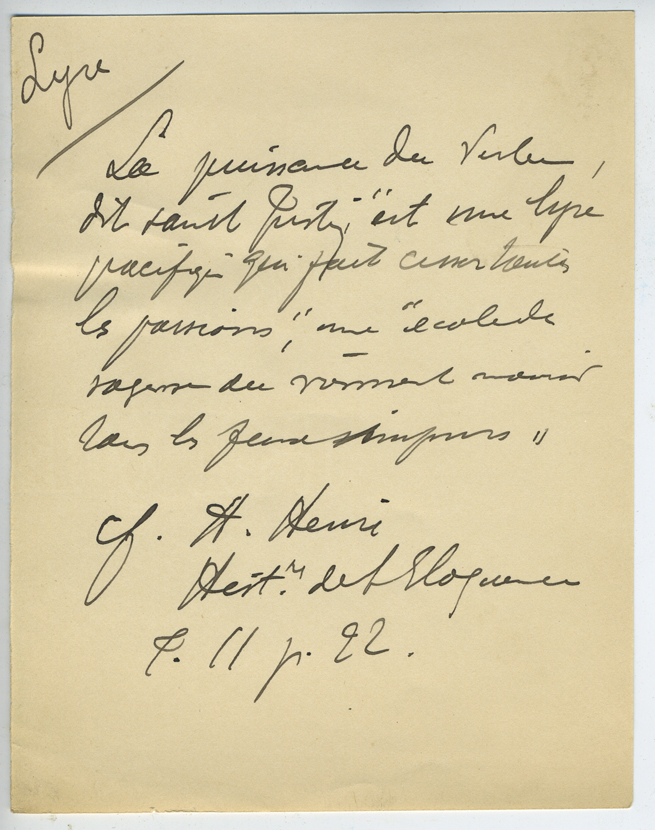 Lyre
La puissance du Verbe,
dit saint Justin, "est une lyre
pacifique qui fait cesser toutes
les passions", une "école de
sagesse où viennent mourir
tous les feux impurs"
cf. A. Henri
Hist.re de l'Eloquence
T. II p. 22.